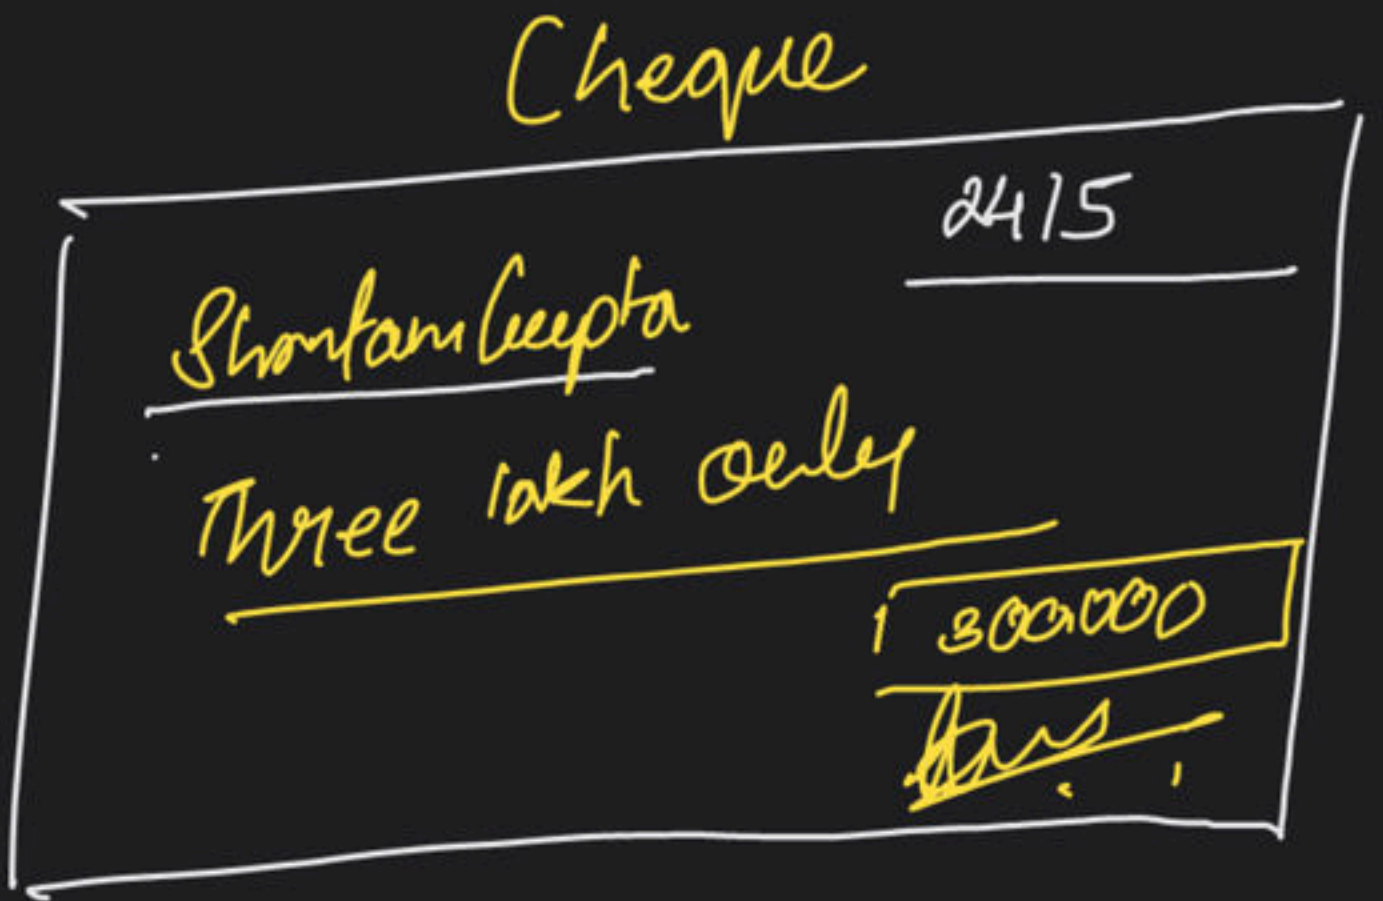 Cheque
24/5
Shantam Gupta
Three lakh only
300000